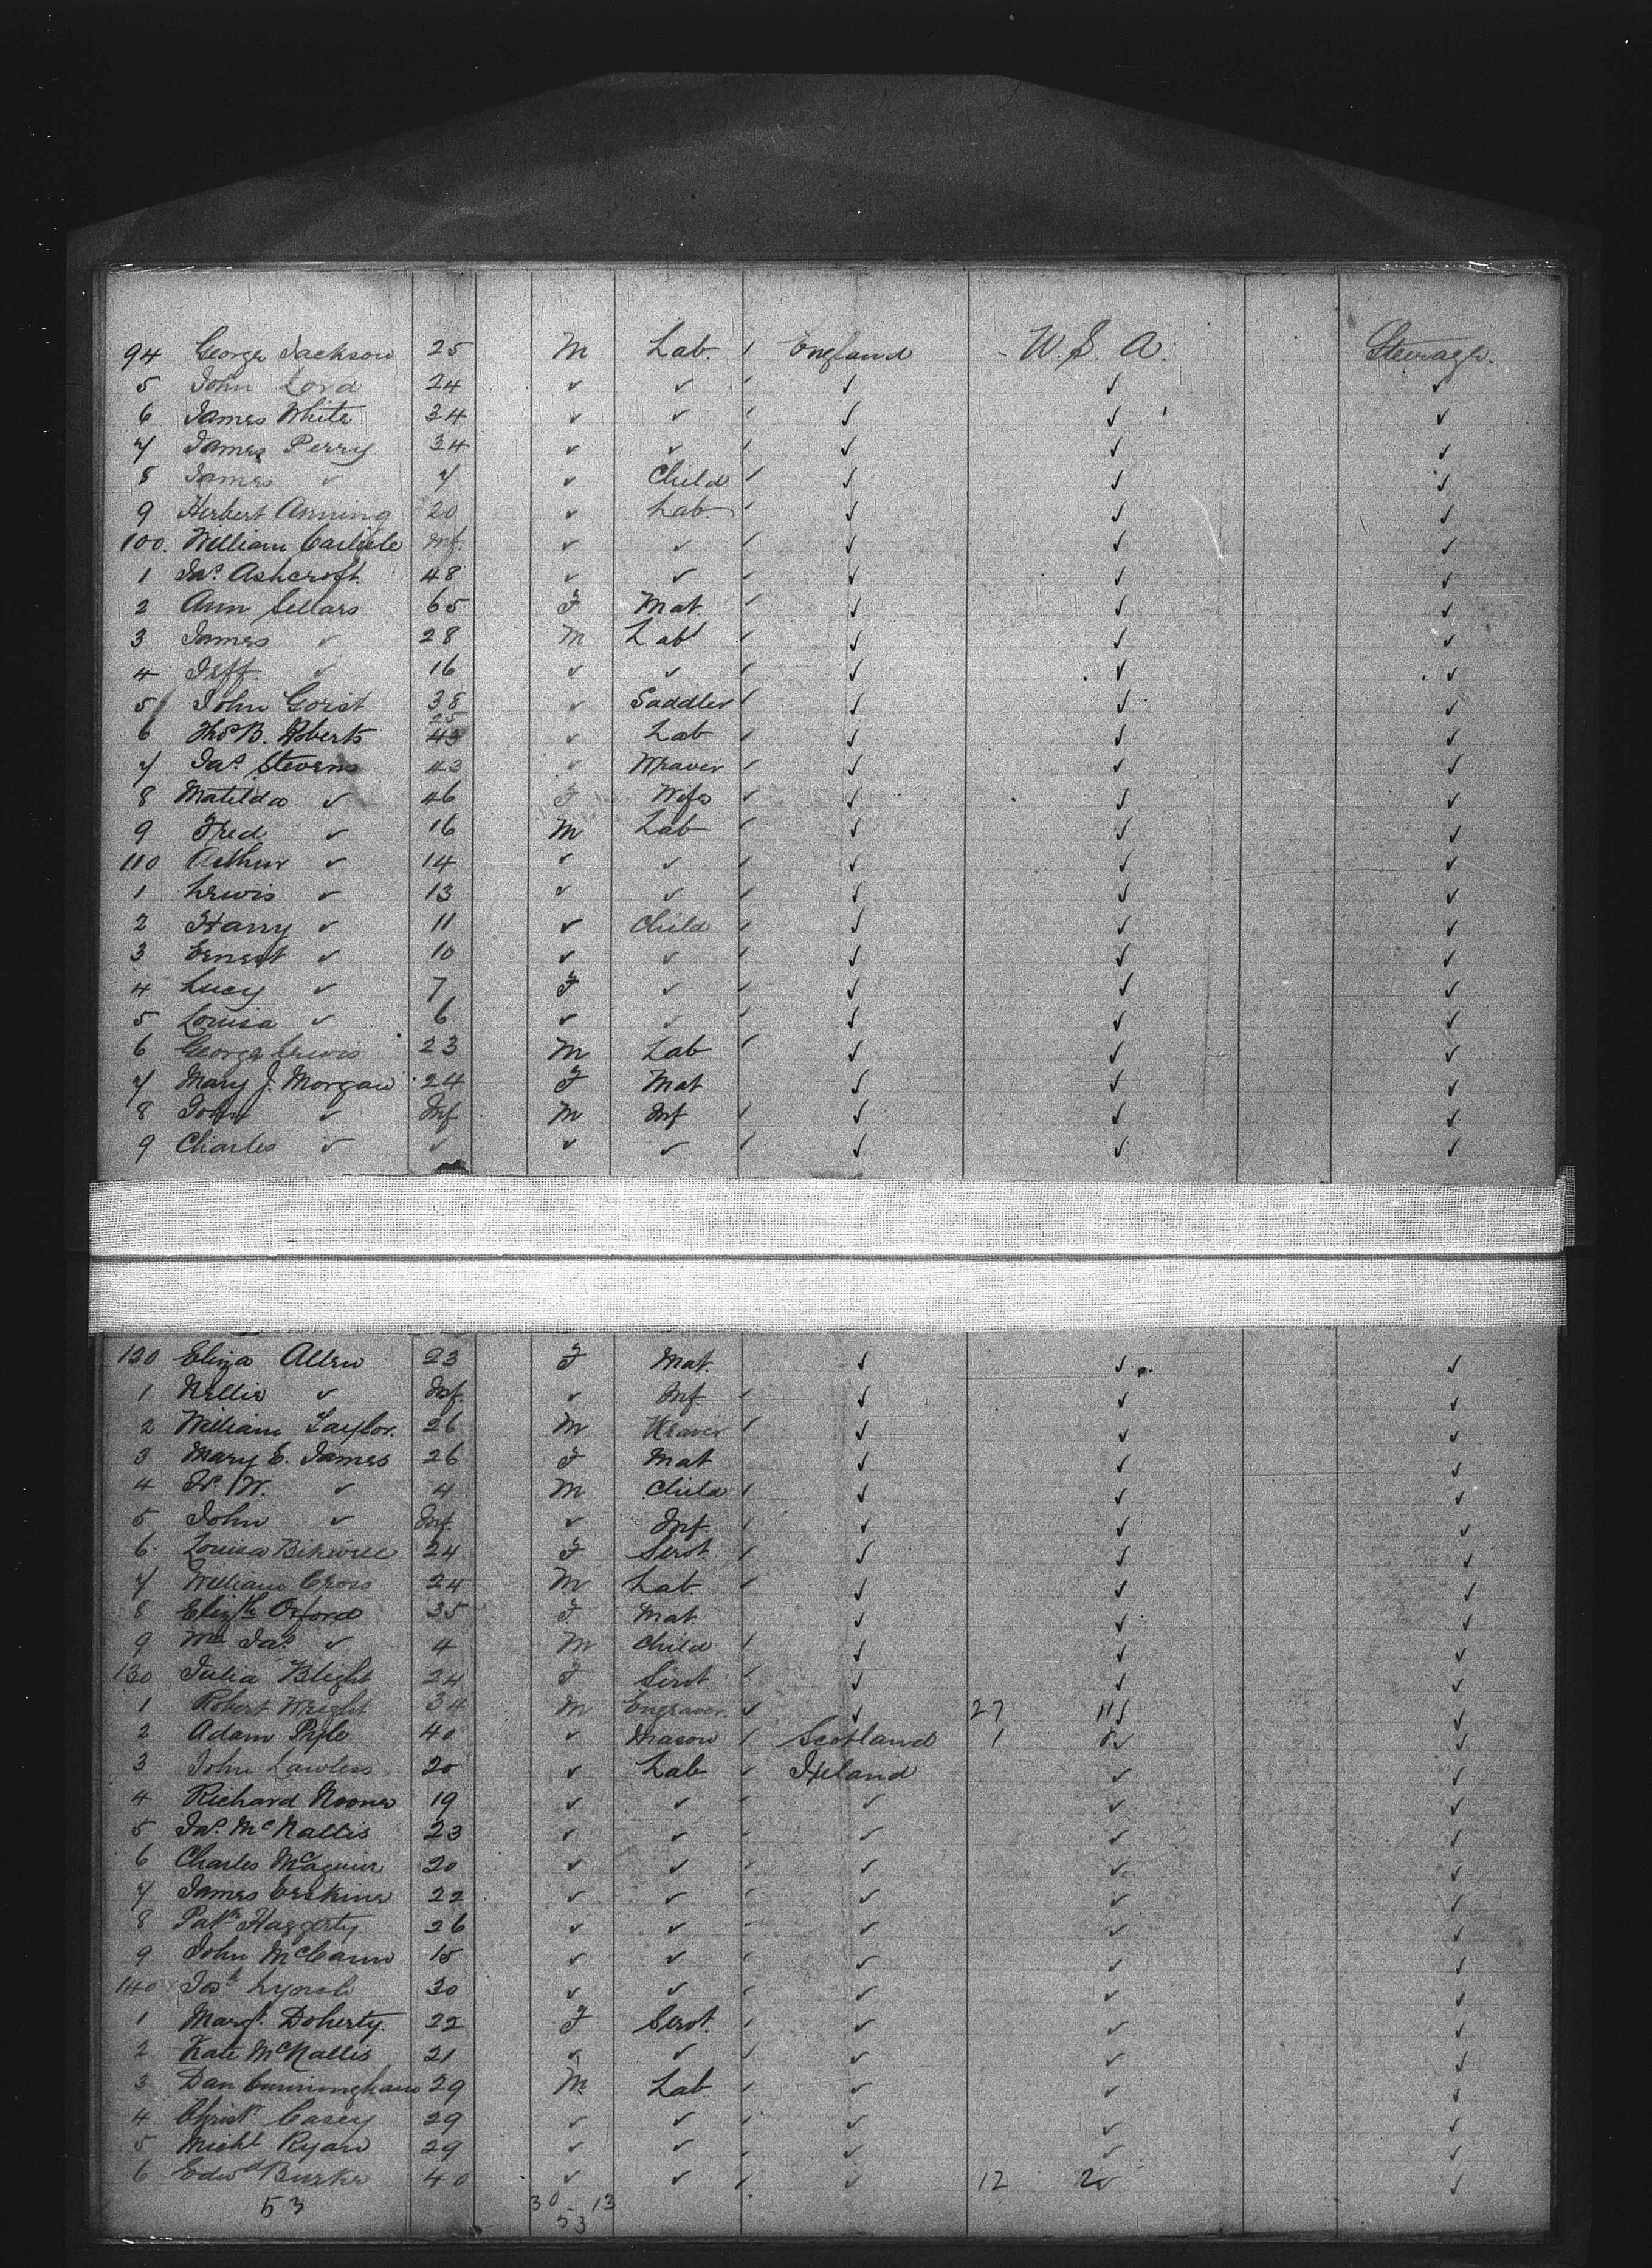 94 George Jackson 25 M Lab. / England - U. S. A. Steerage.
5 John Lord 24 ✓ ✓ / ✓ ✓ ✓
6 James White 34 ✓ ✓ / ✓ ✓ ✓
7 James Perry 34 ✓ ✓ / ✓ ✓ ✓
8 James ✓ 7 ✓ Child / ✓ ✓ ✓
9 Herbert Anning 20 ✓ Lab. / ✓ ✓ ✓
100. William Carlisle Inf. ✓ ✓ / ✓ ✓ ✓
1 Jas. Ashcroft 48 ✓ ✓ / ✓ ✓ ✓
2 Ann Sellars 65 F Mat. / ✓ ✓ ✓
3 James ✓ 28 M Lab / ✓ ✓ ✓
4 Jeff. ✓ 16 ✓ ✓ / ✓ ✓ ✓
5 John Gorst 38 ✓ Saddler / ✓ ✓ ✓
6 Thos B. Roberts 25 ✓ Lab / ✓ ✓ ✓
7 Jas. Stevens 43 ✓ Weaver / ✓ ✓ ✓
8 Matilda ✓ 46 F Wife ✓ ✓ ✓ ✓
9 Fred ✓ 16 M Lab / ✓ ✓ ✓
110 Arthur ✓ 14 ✓ ✓ / ✓ ✓ ✓
1 Lewis ✓ 13 ✓ ✓ / ✓ ✓ ✓
2 Harry ✓ 11 ✓ Child / ✓ ✓ ✓
3 Ernest ✓ 10 ✓ ✓ / ✓ ✓ ✓
4 Lucy ✓ 7 F ✓ / ✓ ✓ ✓
5 Louisa ✓ 6 ✓ ✓ / ✓ ✓ ✓
6 George Lewis 23 M Lab / ✓ ✓ ✓
7 Mary J. Morgan 24 F Mat ✓ ✓ ✓
8 John ✓ Inf M Inf / ✓ ✓ ✓
9 Charles ✓ ✓ ✓ ✓ / ✓ ✓ ✓
130 Eliza Allen 23 F Mat. ✓ ✓ ✓
1 Nellie ✓ Inf. ✓ Inf. / ✓ ✓ ✓
2 William Taylor. 26 M Weaver / ✓ ✓ ✓
3 Mary E. James 26 F Mat ✓ ✓ ✓
4 W. ✓ 4 M Child / ✓ ✓ ✓
5 John ✓ Inf. ✓ Inf. / ✓ ✓ ✓
6. Louisa 24 F Servt. / ✓ ✓ ✓
7 William Cross 24 M Lab. / ✓ ✓ ✓
8 Elizth Oxford 35 F Mat. ✓ ✓ ✓
9 Wm Jas. ✓ 4 M Child / ✓ ✓ ✓
130 Julia Blight 24 F Servt / ✓ ✓ ✓
1 Robert Wright 34 M Engraver. ✓ ✓ 27 ✓
2 Adam Pyle 40 ✓ Mason / Scotland 1 ✓
3 John Lawless 20 ✓ Lab ✓ Ireland ✓ ✓
4 Richard Noone 19 ✓ ✓ / ✓ ✓ ✓
5 Jas. McNallis 23 ✓ ✓ / ✓ ✓ ✓
6 Charles McGuier 20 ✓ ✓ / ✓ ✓ ✓
7 James Erskine 22 ✓ ✓ / ✓ ✓ ✓
8 Patk Haggerty 26 ✓ ✓ / ✓ ✓ ✓
9 John McCann 15 ✓ ✓ / ✓ ✓ ✓
140 Josh Lynch 30 ✓ ✓ / ✓ ✓ ✓
1 Margt. Doherty. 22 F Servt. / ✓ ✓ ✓
2 Kate McNallis 21 ✓ ✓ / ✓ ✓ ✓
3 Dan Cunningham 29 M Lab / ✓ ✓ ✓
4 Christr Casey 29 ✓ ✓ / ✓ ✓ ✓
5 Michl Ryan 29 ✓ ✓ / ✓ ✓ ✓
6 Edwd Burke 40 ✓ ✓ / ✓ 12 ✓
53 30 - 13
53